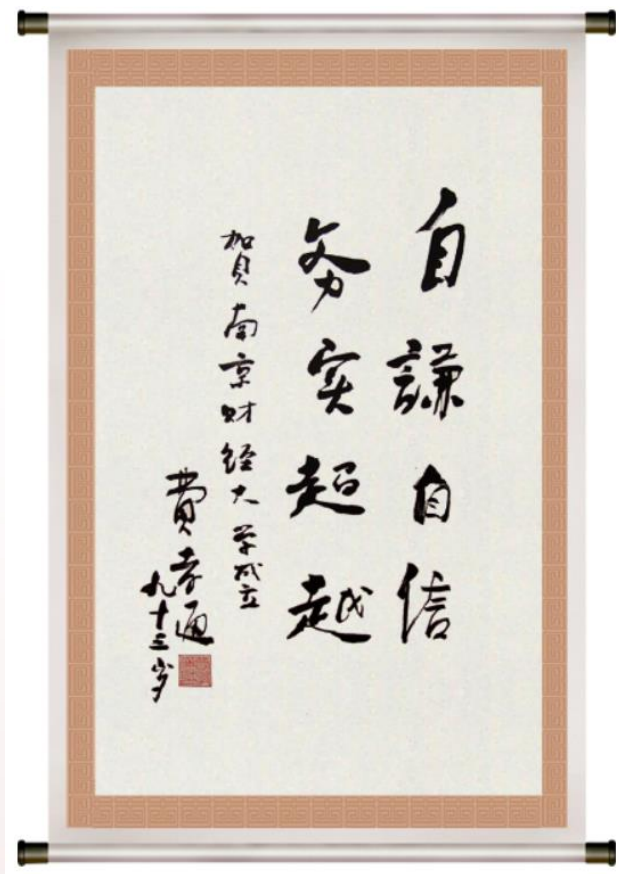 自謙自信
务实超越
贺南京财经大学成立
费孝通
九十三岁